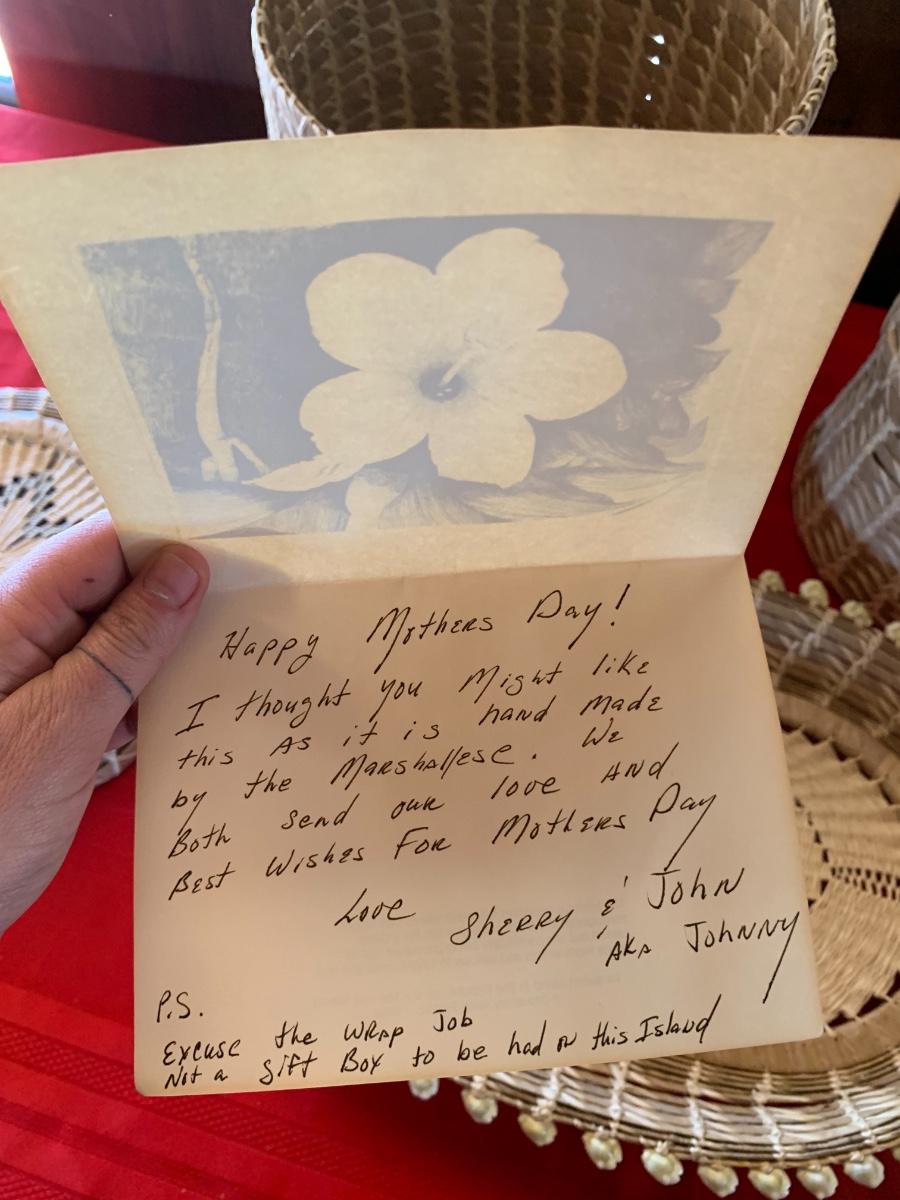 Happy Mothers Day!
I thought you Might like
this As it is hand Made
by the Marshallese. We
Both send our love AND
Best Wishes For Mothers Day
Love Sherry & John
AKA Johnny
P.S.
Excuse the Wrap Job
Not a gift Box to be had on this Island